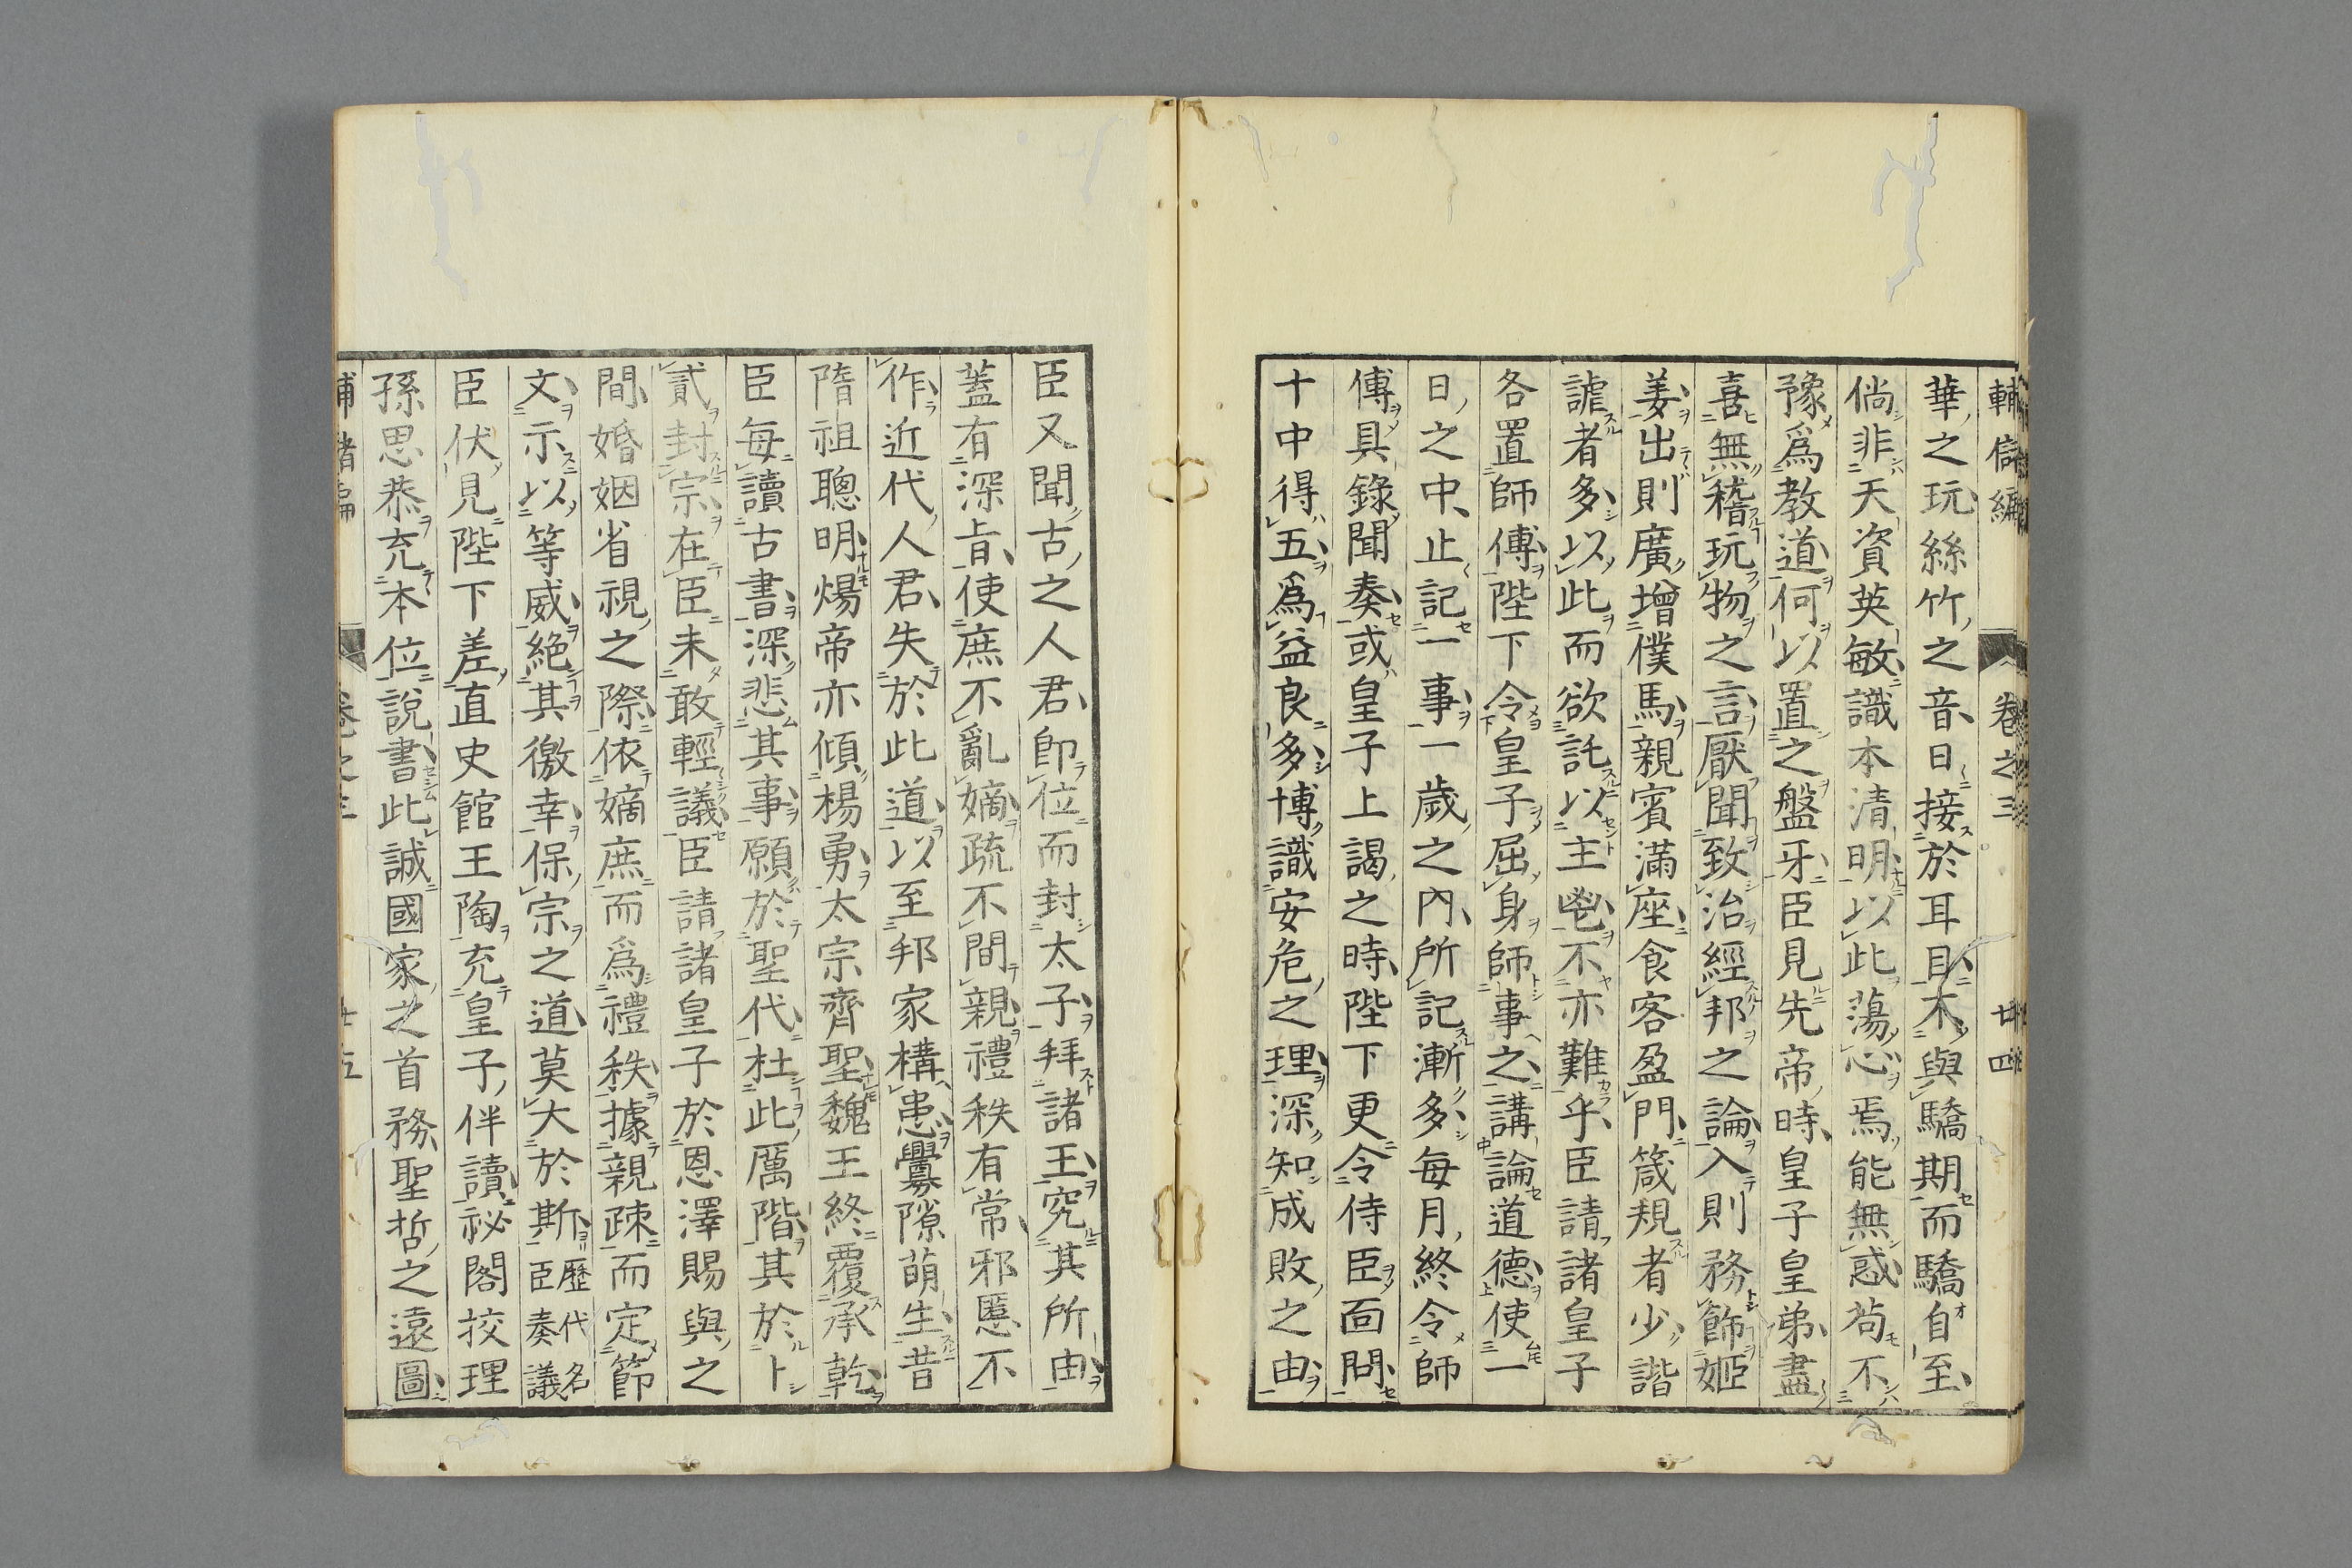 輔儲編 卷之三 廿四
華之玩絲竹之音日接於耳目不與驕期而驕自至
倘非天資英敏識本清明以此蕩心焉能無惑苟不
豫爲教道何以置之盤牙臣見先帝時皇子皇弟盡
喜無稽玩物之言厭聞致治經邦之論入則務飾姬
姜出則廣增僕馬親賓滿座食客盈門箴規者少諧
謔者多以此而欲託以主鬯不亦難乎臣請諸皇子
各置師傅陛下令皇子屈身師事之講論道德使一
日之中止記一事一歲之內所記漸多每月終令師
傅具錄聞奏或皇子上謁之時陛下更令侍臣面問
十中得五爲益良多博識安危之理深知成敗之由
臣又聞古之人君即位而封太子拜諸王究其所由
蓋有深旨使庶不亂嫡疏不間親禮秩有常邪慝不
作近代人君失於此道以至邦家構患釁隙萌生昔
隋祖聰明煬帝亦傾楊勇太宗齊聖魏王終覆承乾
臣每讀古書深悲其事願於聖代杜此厲階其於卜
貳封宗在臣未敢輕議臣請諸皇子於恩澤賜與之
間婚姻省視之際依嫡庶而爲禮秩據親疎而定節
文示以等威絕其徼幸保宗之道莫大於斯下ヨリ歷代名臣奏議
臣伏見陛下差直史館王陶充皇子伴讀祕閣挍理
孫思恭充本位說書此誠國家之首務聖哲之遠圖
輔儲編 卷之三 廿五